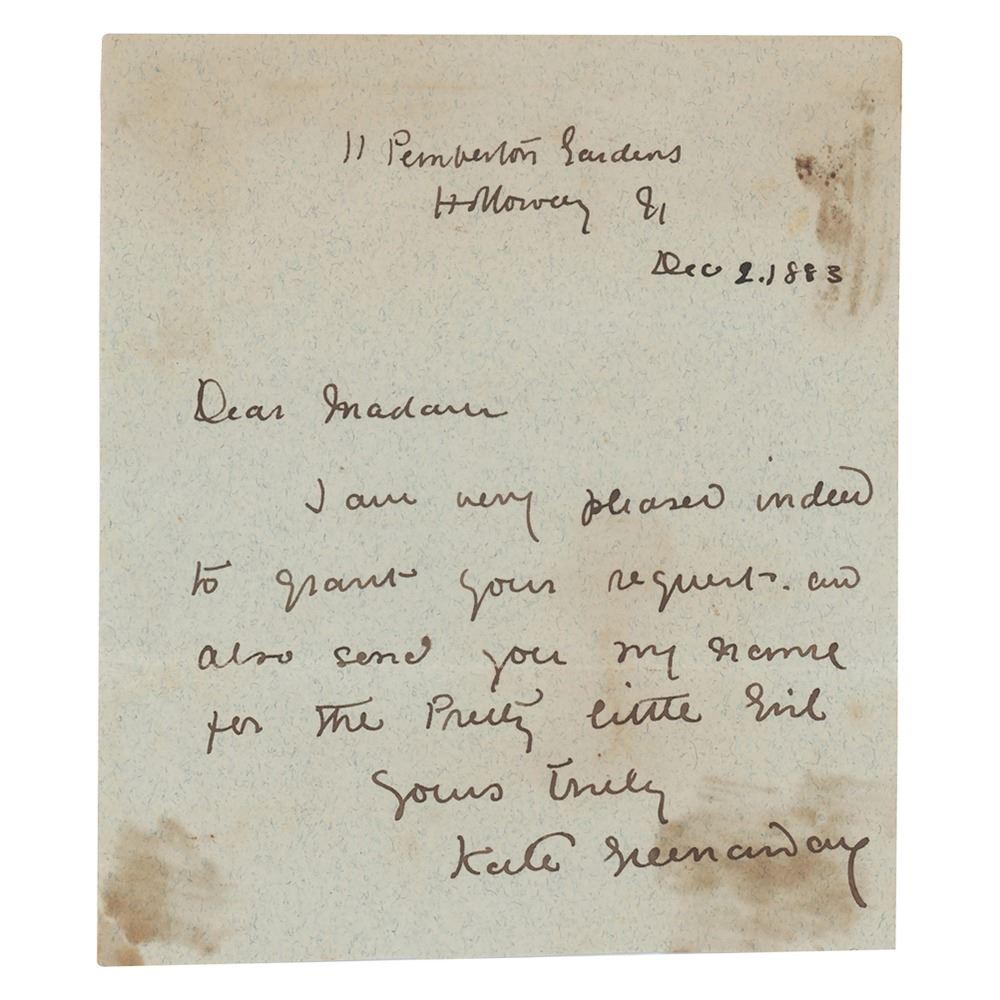 11 Pemberton Gardens
Holloway N
Dec 2.1883
Dear Madam
I am very pleased indeed
to grant your request. and
also send you my name
for the Pretty little Girl
Yours truly
Kate Greenaway